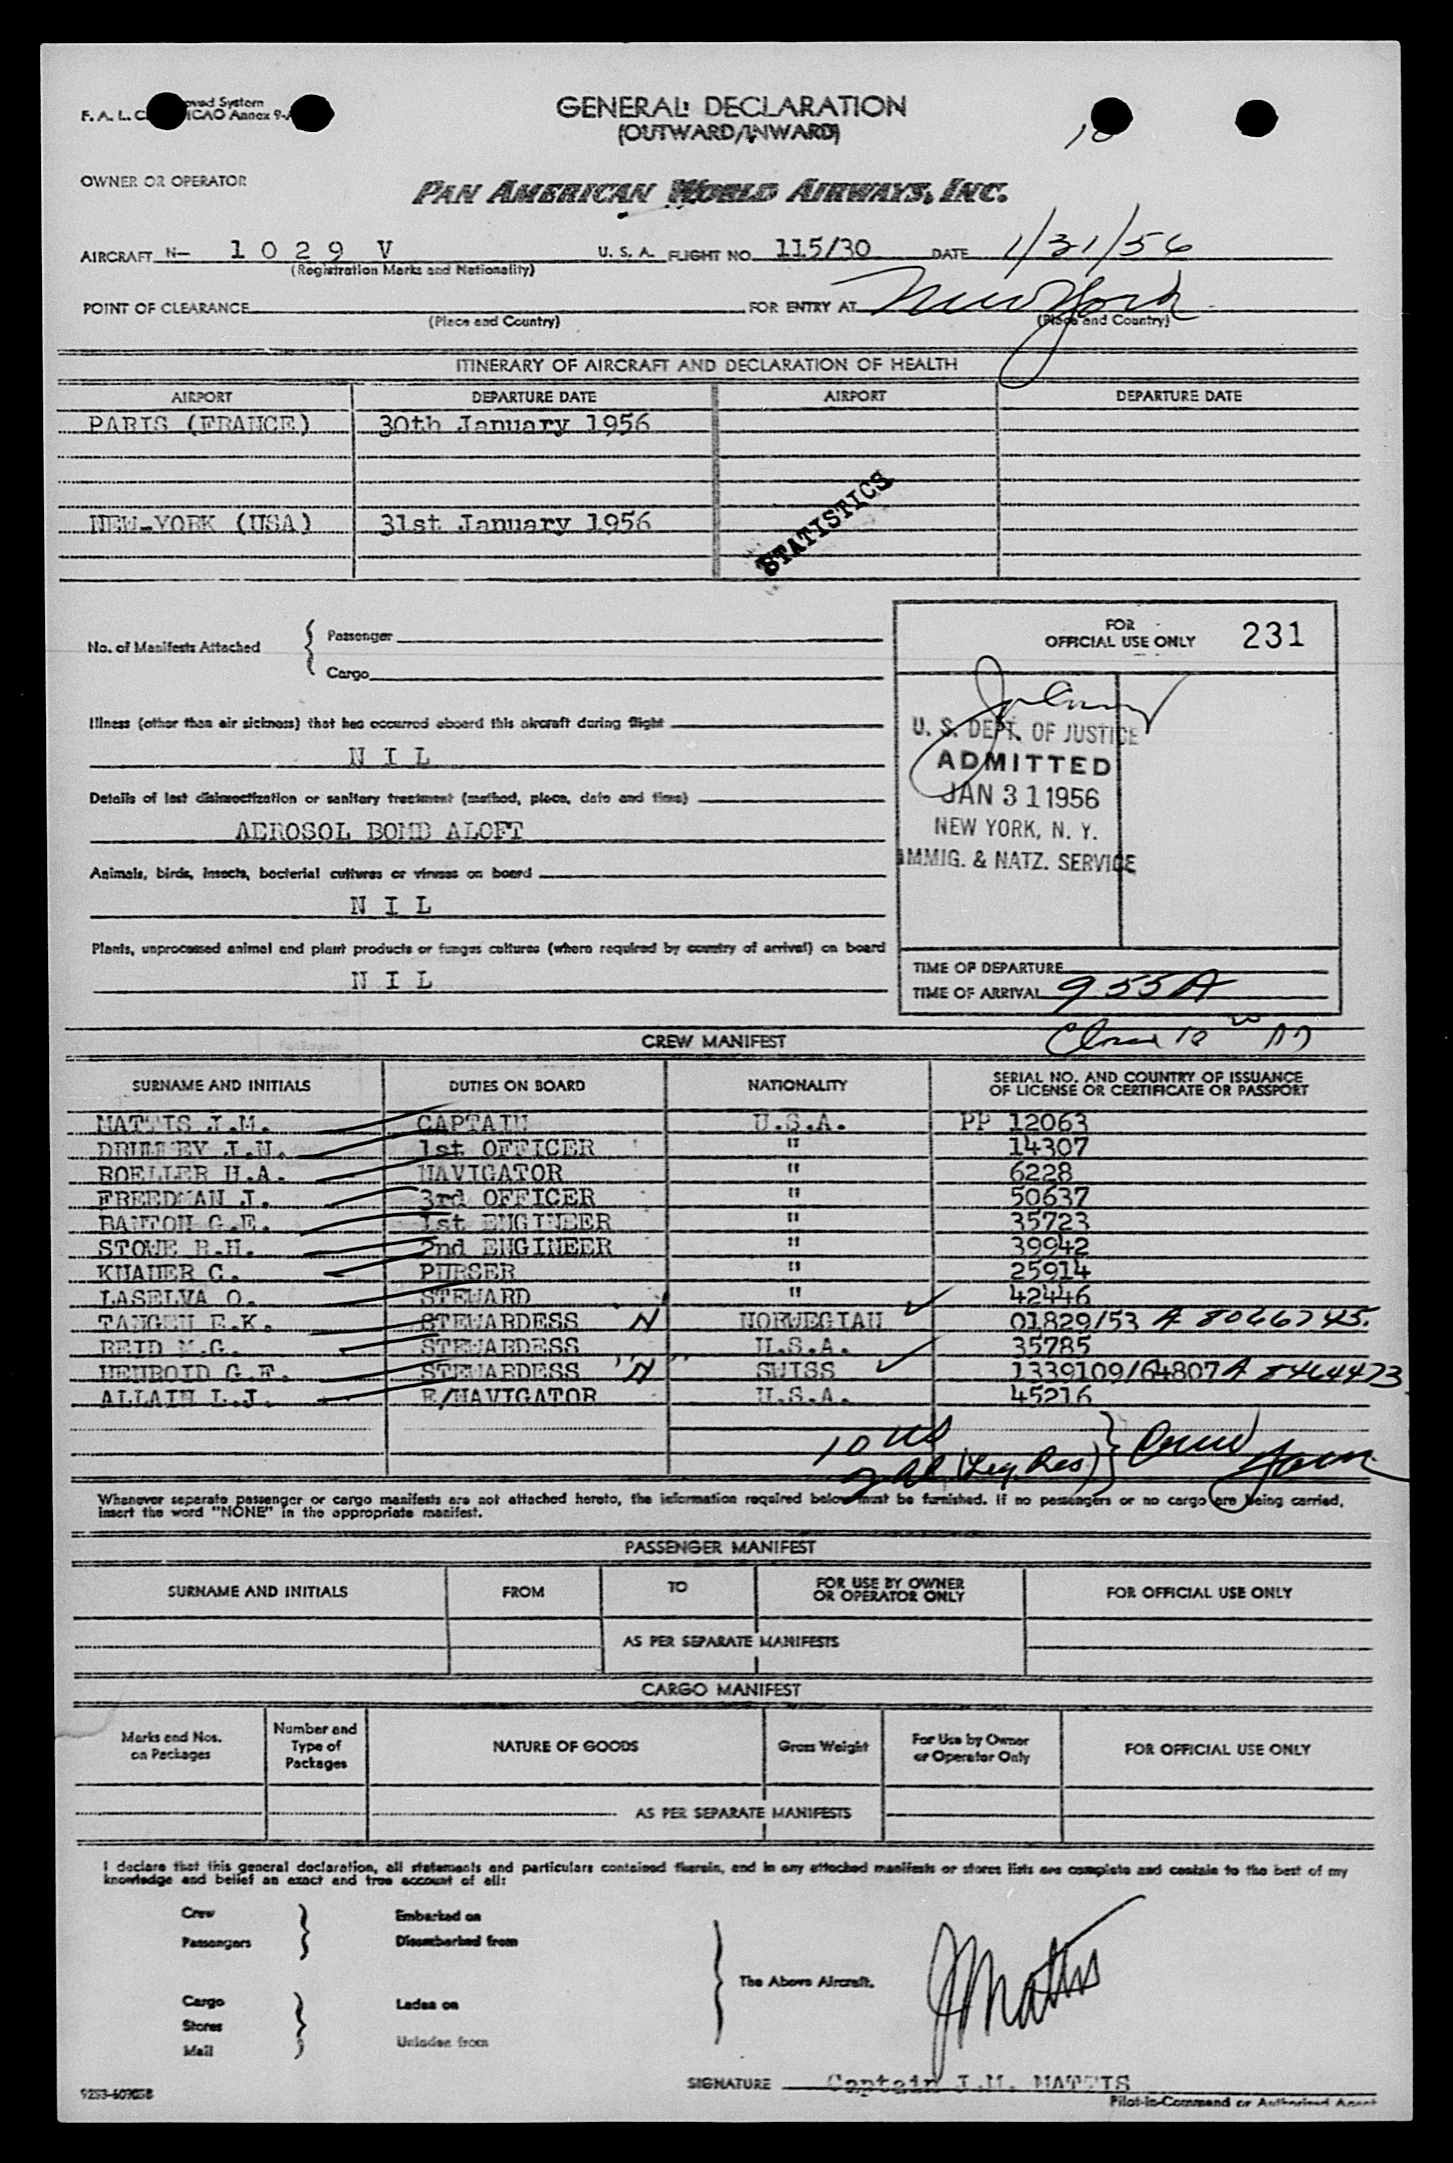 F. A. L. C. oved System
ICAO Annex 9-A
GENERAL DECLARATION
(OUTWARD/INWARD)
OWNER OR OPERATOR
PAN AMERICAN WORLD AIRWAYS, INC.
AIRCRAFT N- 1 0 2 9 V U. S. A. FLIGHT NO. 115/30 DATE 1/31/56
(Registration Marks and Nationality)
POINT OF CLEARANCE FOR ENTRY AT New York
(Place and Country) (Place and Country)
ITINERARY OF AIRCRAFT AND DECLARATION OF HEALTH
AIRPORT DEPARTURE DATE AIRPORT DEPARTURE DATE
PARIS (FRANCE) 30th January 1956
STATISTICS
NEW-YORK (USA) 31st January 1956
No. of Manifests Attached { Passenger
Cargo
FOR OFFICIAL USE ONLY 231
Illness (other than air sickness) that has occurred aboard this aircraft during flight
N I L
Details of last disinsectization or sanitary treatment (method, place, date and time)
AEROSOL BOMB ALOFT
Animals, birds, insects, bacterial cultures or viruses on board
N I L
Plants, unprocessed animal and plant products or fungus cultures (where required by country of arrival) on board
N I L
U. S. DEPT. OF JUSTICE
ADMITTED
JAN 31 1956
NEW YORK, N. Y.
IMMIG. & NATZ. SERVICE
TIME OF DEPARTURE
TIME OF ARRIVAL 955A
CREW MANIFEST
SURNAME AND INITIALS DUTIES ON BOARD NATIONALITY SERIAL NO. AND COUNTRY OF ISSUANCE OF LICENSE OR CERTIFICATE OR PASSPORT
MATTIS J.M. CAPTAIN U.S.A. PP 12063
J.N. 1st OFFICER " 14307
ROELLER H.A. NAVIGATOR " 6228
FREEDMAN J. 3rd OFFICER " 50637
BANTON G.E. 1st ENGINEER " 35723
STOWE R.H. 2nd ENGINEER " 39942
KNAUER C. PURSER " 25914
LASELVA O. STEWARD " 42446
TANGEN E.K. STEWARDESS N NORWEGIAN 01829/53 A 8066745
REID M.G. STEWARDESS U.S.A. 35785
G.F. STEWARDESS "N" SWISS 1339109/64807 A 8464473
ALLAIN L.J. E/NAVIGATOR U.S.A. 45216
10 US
2 Al (Leg. Res)
Whenever separate passenger or cargo manifests are not attached hereto, the information required below must be furnished. If no passengers or no cargo are being carried,
insert the word "NONE" in the appropriate manifest.
PASSENGER MANIFEST
SURNAME AND INITIALS FROM TO FOR USE BY OWNER OR OPERATOR ONLY FOR OFFICIAL USE ONLY
AS PER SEPARATE MANIFESTS
CARGO MANIFEST
Marks and Nos. on Packages Number and Type of Packages NATURE OF GOODS Gross Weight For Use by Owner or Operator Only FOR OFFICIAL USE ONLY
AS PER SEPARATE MANIFESTS
I declare that this general declaration, all statements and particulars contained therein, and in any attached manifests or stores lists are complete and contain to the best of my
knowledge and belief an exact and true account of all:
Crew Embarked on
Passengers Disembarked from
The Above Aircraft.
Cargo Laden on
Stores
Mail Unladen from
J Mattis
SIGNATURE Captain J.M. MATTIS
Pilot-in-Command or Authorized Agent